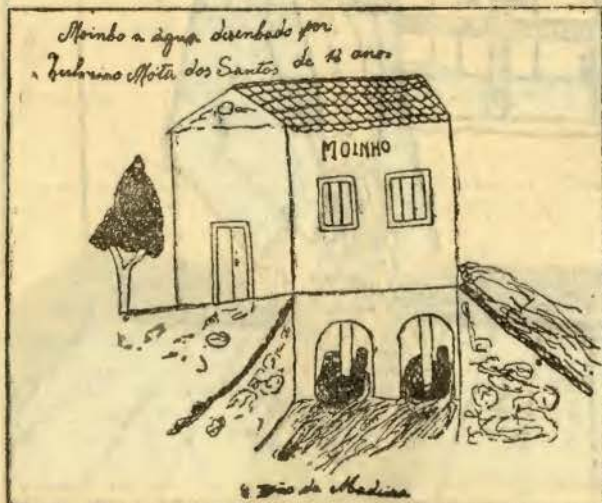 Moinho a água desenhado por
Mota dos Santos de anos
MOINHO
da Madeira